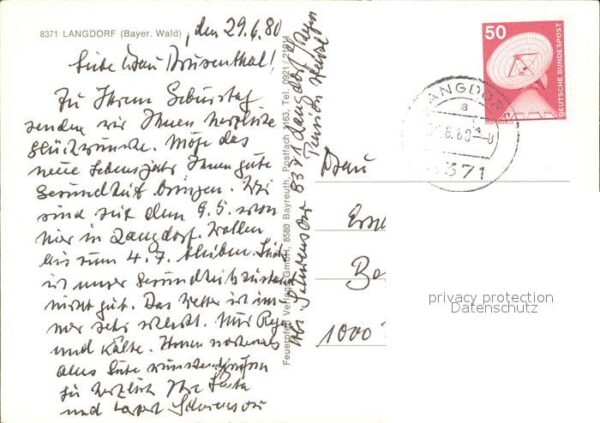 8371 LANGDORF (Bayer. Wald)
, den 29.6.80
Liebe Frau Brusenthal!
Zu Ihrem Geburtstag
senden wir Ihnen herzliche
Glückwünsche. Möge das
neue Lebensjahr Ihnen gute
Gesundheit bringen. Wir
sind seit dem 9.5. schon
hier in Langdorf. Wollen
bis zum 4.7. bleiben. Leider
ist unser Gesundheitszustand
nicht gut. Das Wetter ist im-
mer sehr schlecht. Nur Regen
und Kälte. Ihnen nochmals
alles Gute wünschen grüßen
Sie herzlich Ihre
und
Feuerpfeil Verlags GmbH, 8580 Bayreuth, Postfach 3163, Tel. 0921/
8371 Langdorf
Pension
50
DEUTSCHE BUNDESPOST
LANGDORF
a
8371
Frau
1000
privacy protection
Datenschutz